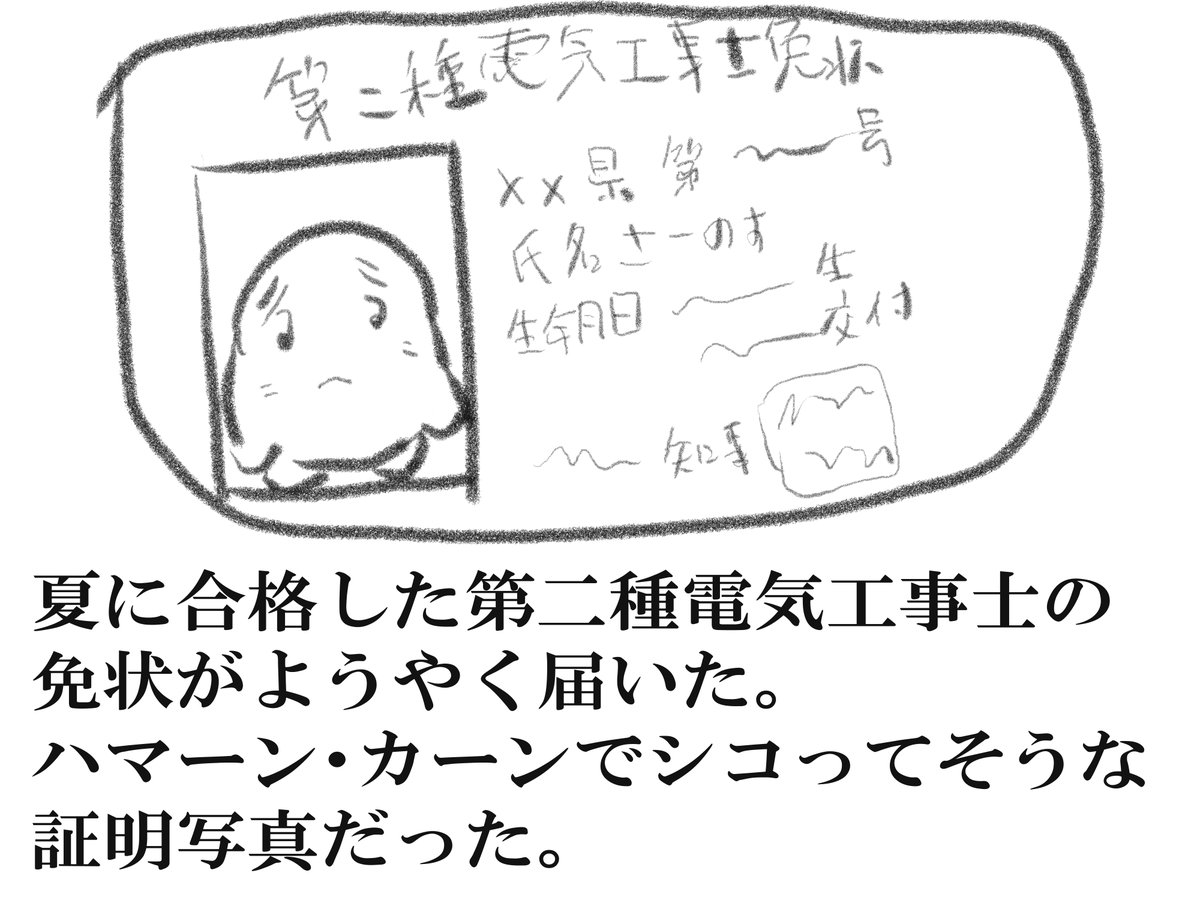 第二種電気工事士免状
××県第 号
氏名さーのす
生年月日 生
交付
知事
夏に合格した第二種電気工事士の
免状がようやく届いた。
ハマーン・カーンでシコってそうな
証明写真だった。